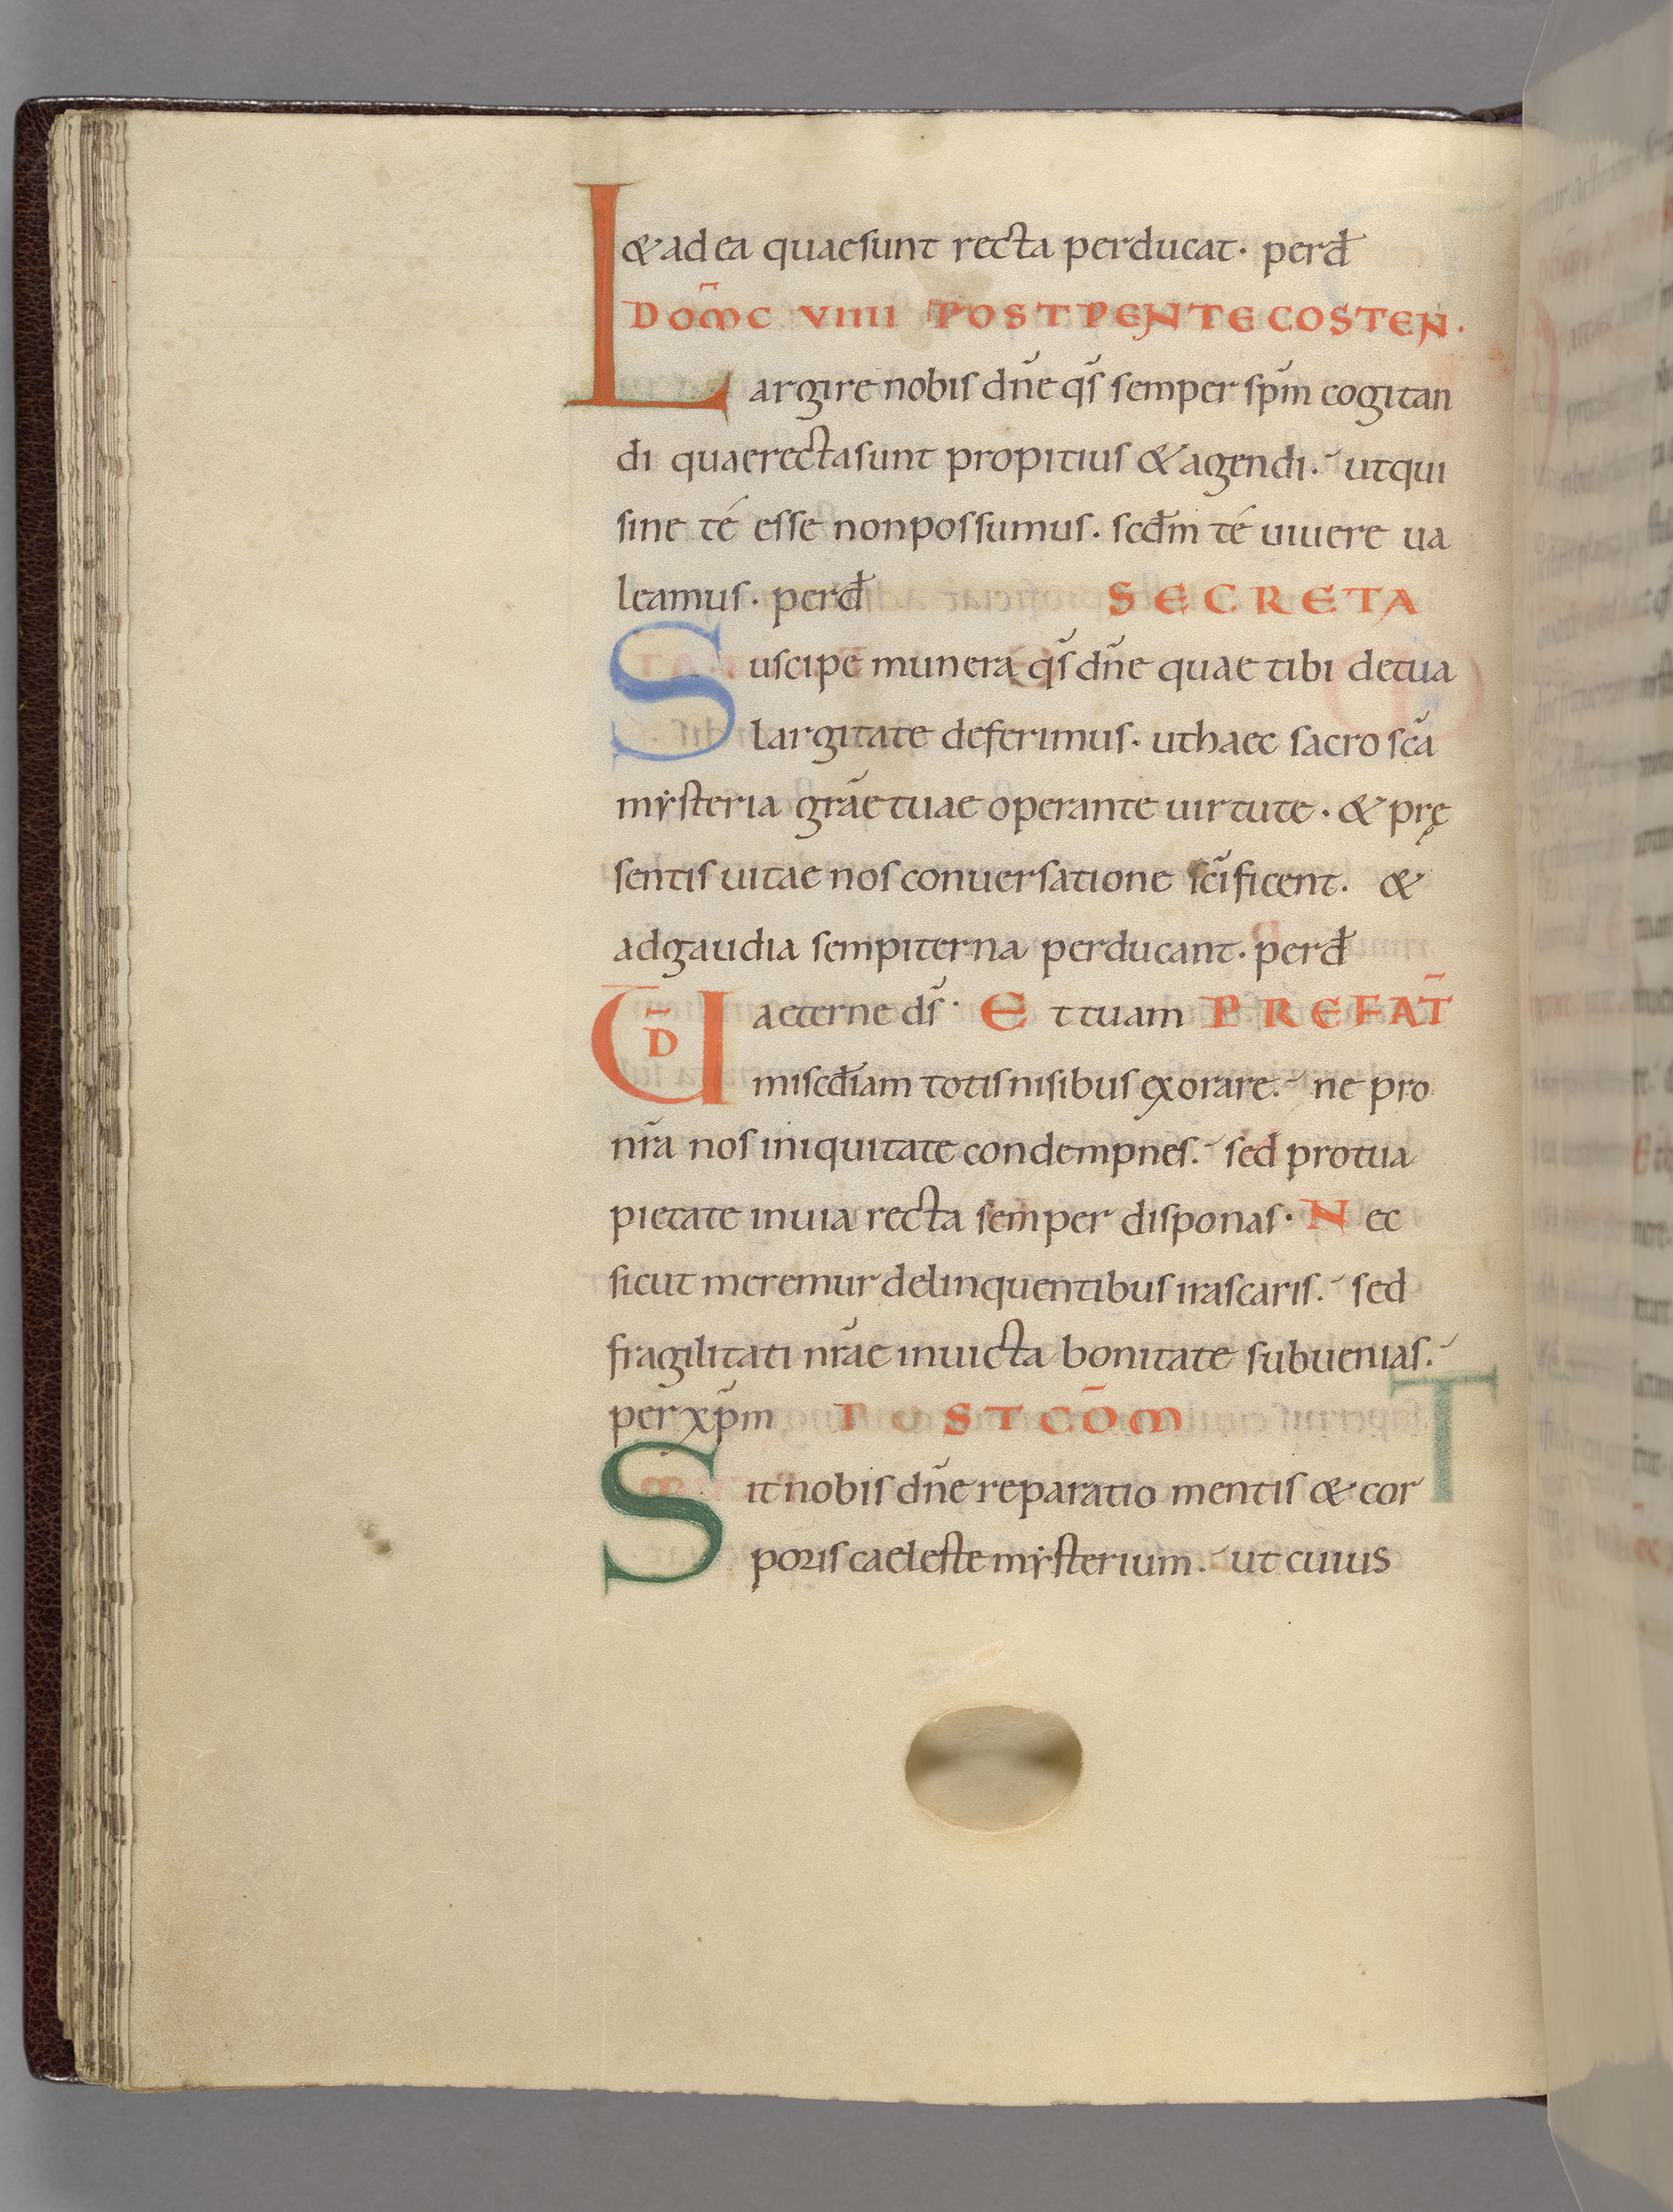 & ad ea quae sunt recta perducat · perđ
DOM̄C VIIII POST PENTECOSTEN ·
Largire nobis dn̄e qs̄ semper sp̄m cogitan
di quae recta sunt propitius & agendi · ut qui
sine té esse non possumus · scđm té uiuere ua
leamus · perđ SECRETA
Suscipe munera qs̄ dn̄e quae tibi de tua
largitate deferimus · ut haec sacro sc̄a
mẏsteria grāe tuae operante uirtute · & prę
sentis uitae nos conuersatione sc̄ificent · &
ad gaudia sempiterna perducant · perđ
UD̄ aeterne ds̄ · Et tuam PREFAT̄
miscđiam totis nisibus exorare · ne pro
nr̄a nos iniquitate condempnes · sed pro tua
pietate in uia recta semper disponas · Nec
sicut meremur delinquentibus irascaris · sed
fragilitati nr̄ae inuicta bonitate subuenias ·
per̄ xp̄m POSTCŌM
Sit nobis dn̄e reparatio mentis & cor
poris caeleste mẏsterium · ut cuius